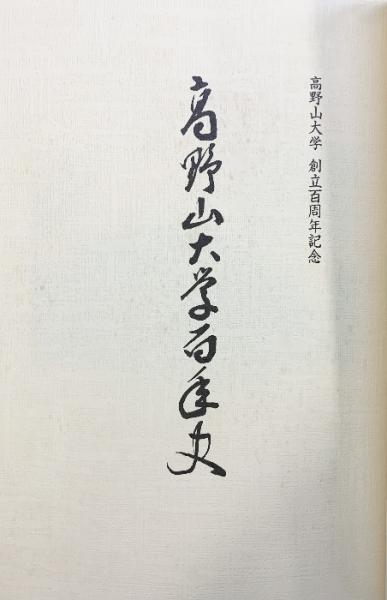 高野山大学 創立百周年記念
高野山大学百年史